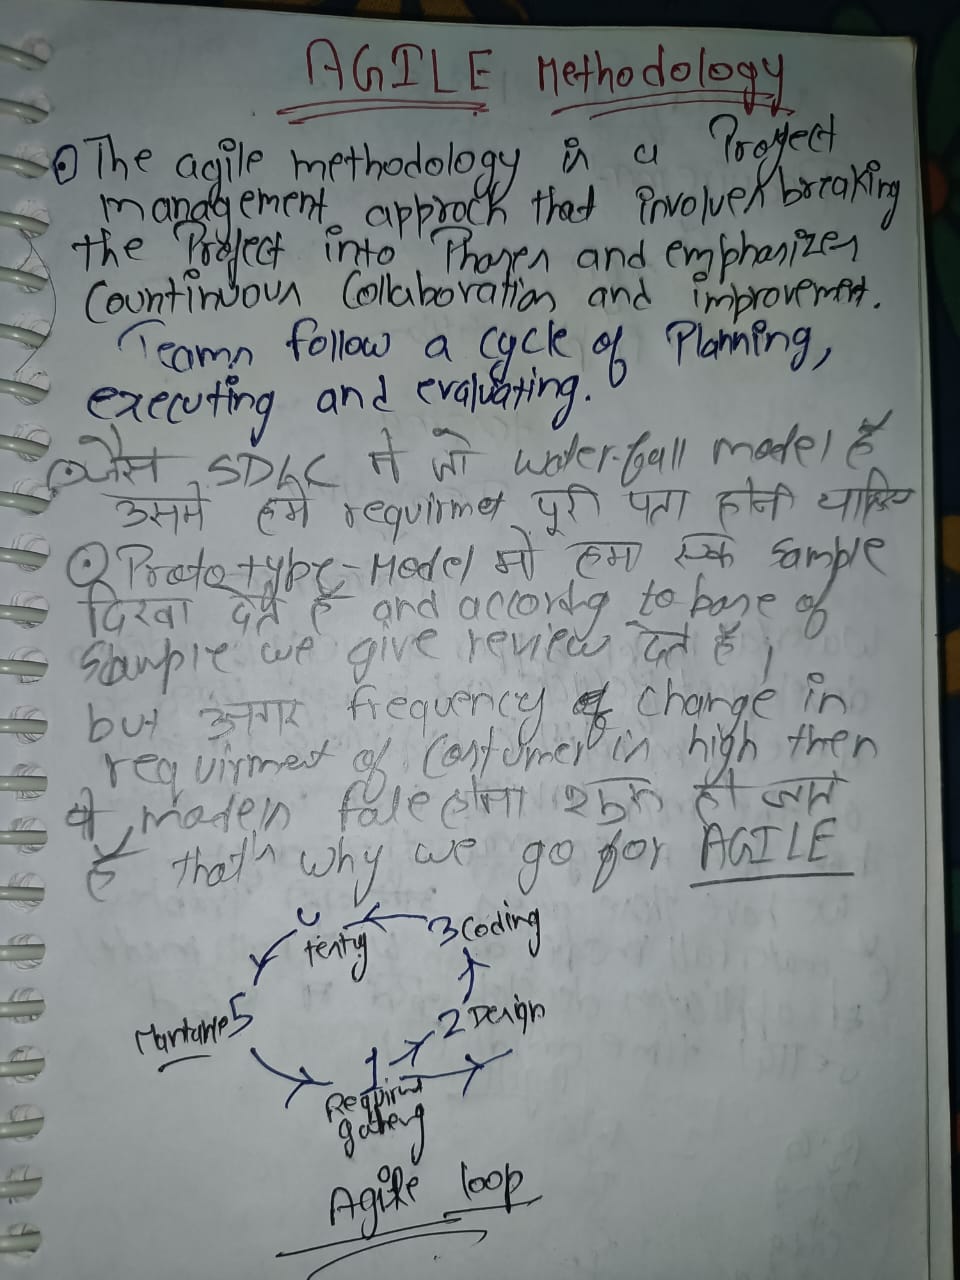 AGILE Methodology
The agile methodology is a Project
management approch that involves breaking
the Project into Phases and emphasizes
Countinuous Collaboration and improvement.
Teams follow a cycle of Planning,
executing and evaluating.
जैसे SDLC मे जो water-fall model है
उसमे हमे requirmet पूरी पता होनी चाहिए
Prototype-Model मे हम एक sample
दिखा देते है and accordig to base of
sample we give review देते है,
but अगर frequency of change in
requirmet of Costumer is high then
ये models fale होना शुरू हो जाते
है that's why we go for AGILE
3 Coding
testig
2 Design
5
1
Requirmt
gatherig
Agile loop